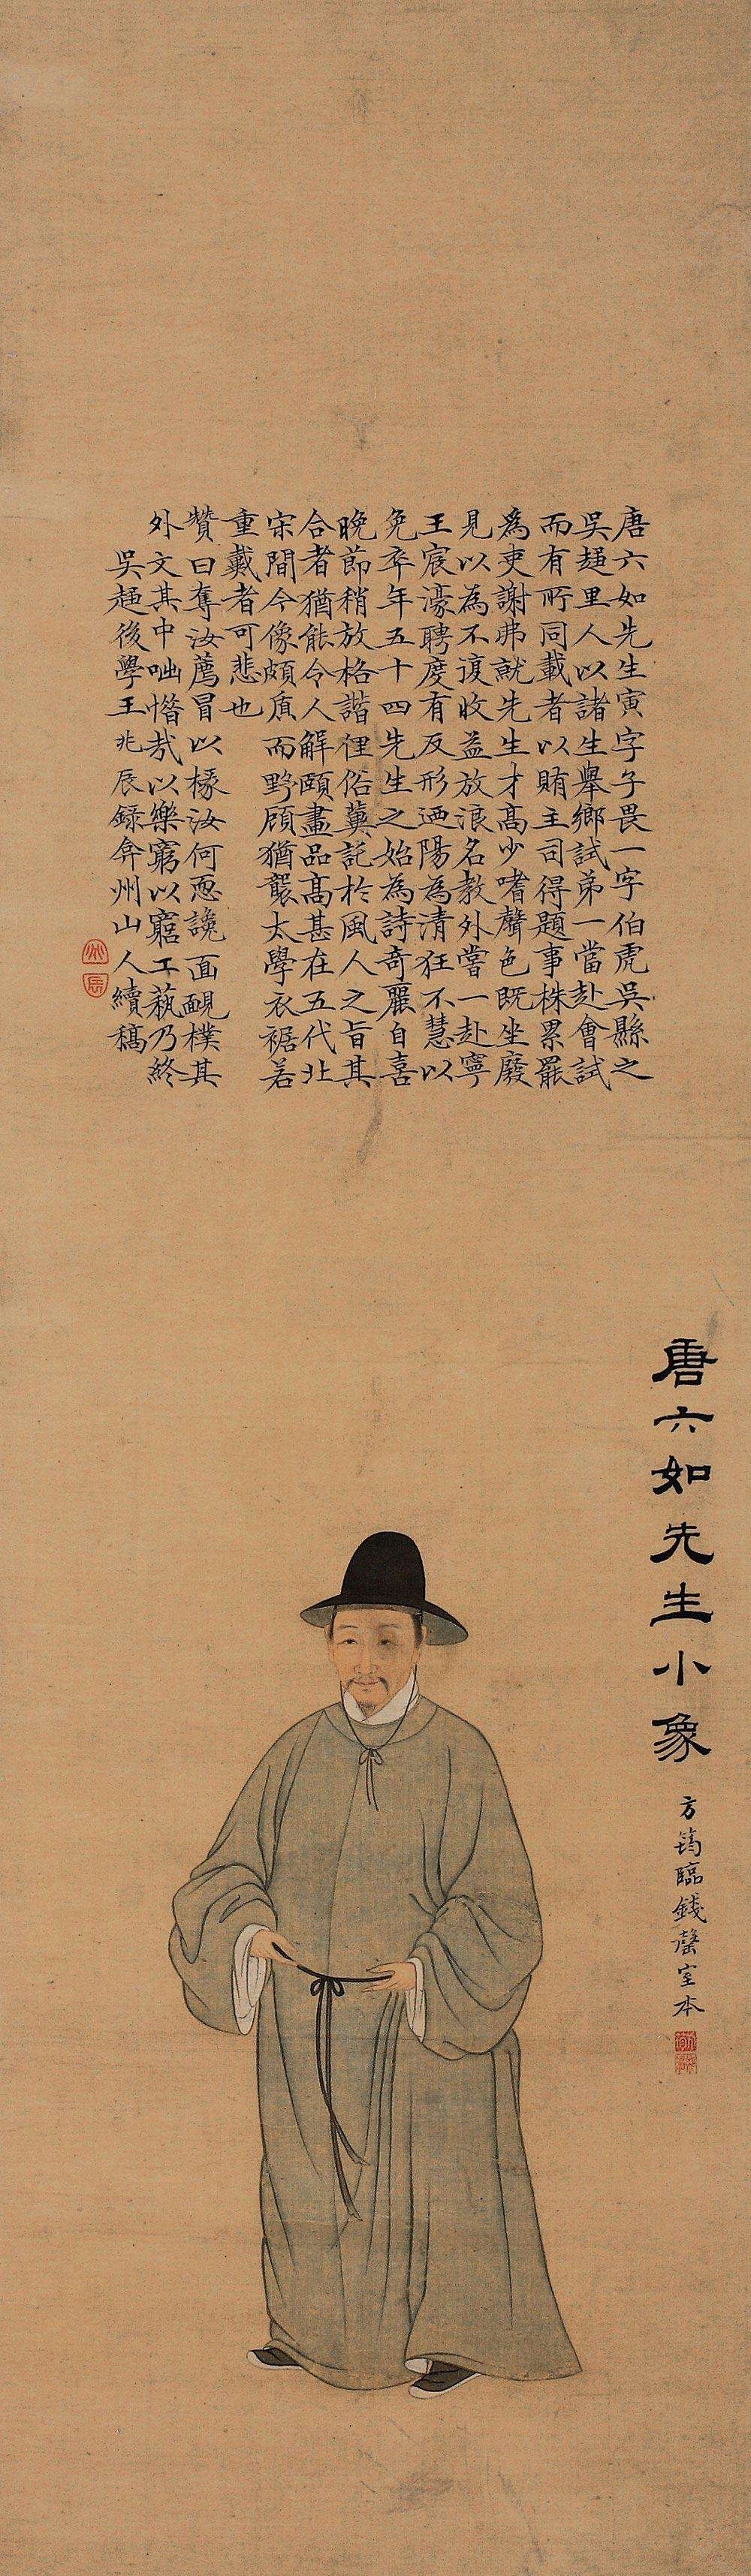 唐六如先生寅字子畏一字伯虎吳縣之
吳趨里人以諸生舉鄉試弟一當赴會試
而有所同載者以賄主司得題事株累罷
為吏謝弗就先生才高少嗜聲色既坐廢
見以為不復收益放浪名教外嘗一赴寧
王宸濠聘度有反形迺陽為清狂不慧以
免卒年五十四先生之始為詩奇麗自喜
晚節稍放格諧俚俗冀託於風人之旨其
合者猶能令人解頤畫品高甚在五代北
宋間今像頗質而野顧猶襲太學衣裾若
重戴者可悲也
贊曰奪汝薦冒以椽汝何恧讒面靦樸其
外文其中咄憯哉以樂窮以窮工藝乃終
吳趨後學王兆辰錄弇州山人續稿
兆辰
唐六如先生小象
方筠臨錢磬室本